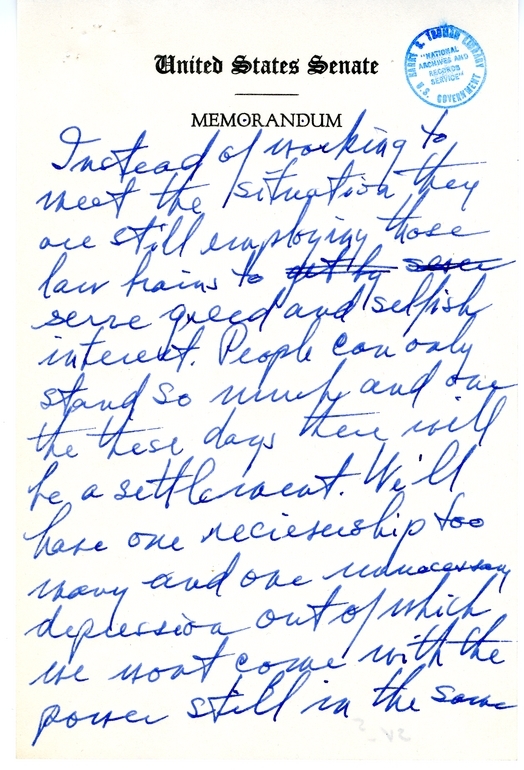 United States Senate
HARRY S. TRUMAN LIBRARY
"NATIONAL
ARCHIVES AND
RECORDS
SERVICE"
U.S. GOVERNMENT
MEMORANDUM
Instead of working to
meet the situation they
are still employing those
law brains to get by
serve greed and selfish
interest. People can only
stand so much and one
the these days there will
be a settlement. We'll
have one recieviership too
many and one unnecessary
depression out of which
we wont come with the
power still in the same